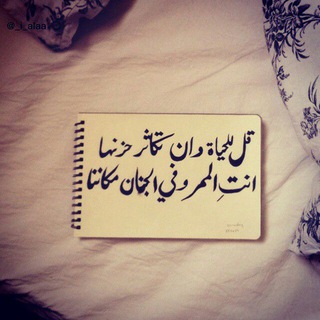 @_i_alaa
قل للحياة وان تكاثر حزنها
انتِ الممر وفي الجنان مكاننا